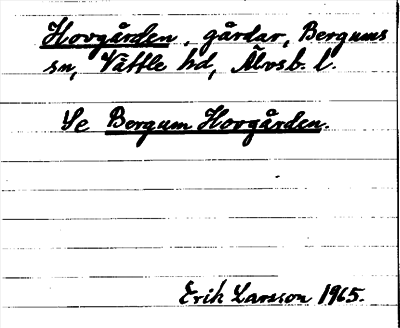 Hovgården, gårdar, Bergums
sn, Vättle hd, Älvsb. l.
Se Bergum Hovgården.
Erik Larsson 1965.